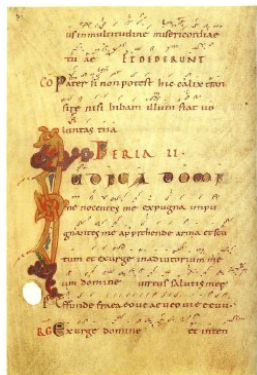 us in multitudine misericordiae
tu ae ET DEDERUNT
CO Pater si non potest hic calix tran
sire nisi bibam illum fiat vo
luntas tua
FERIA II.
IUDICA DOMI
ne nocentes me expugna inpu
gnantes me apprehende arma et scu
tum et exurge in adiutorium me
um domine virtus salutis meę
Effunde
RG Exurge domine et inten